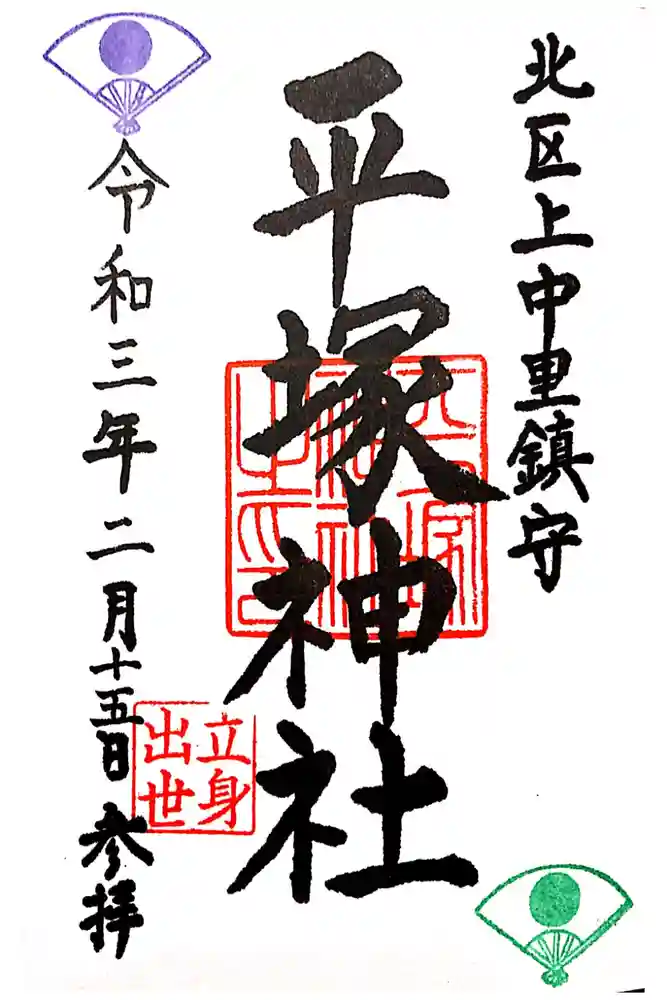 北区上中里鎮守
平塚神社
令和三年二月十五日参拝
立身
出世